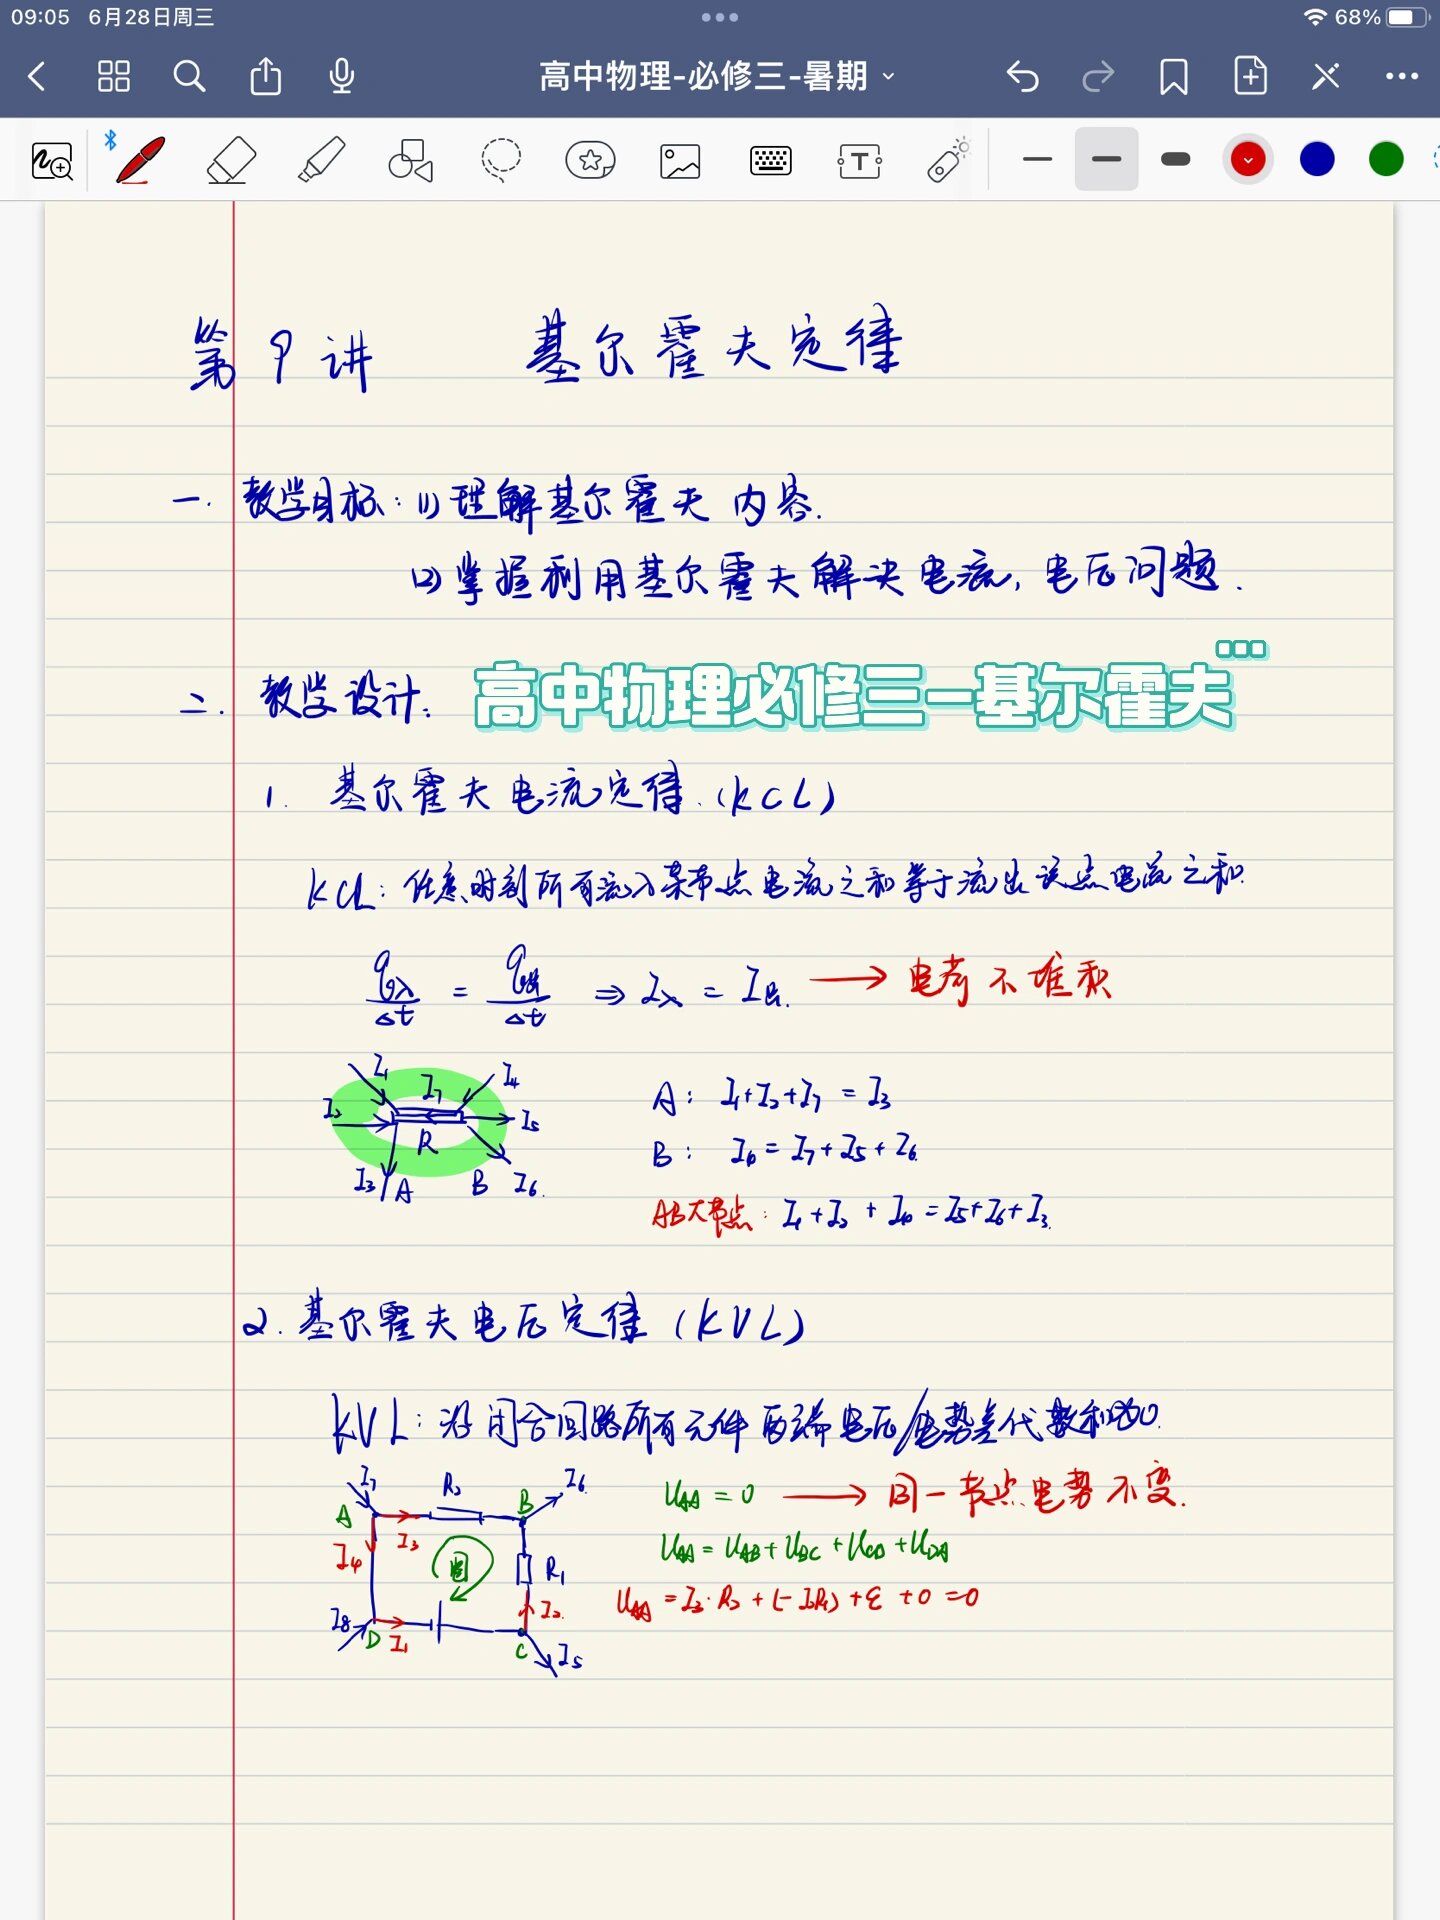 09:05 6月28日周三 68%
高中物理-必修三-暑期
第9讲 基尔霍夫定律
一. 教学目标: (1) 理解基尔霍夫内容.
(2) 掌握利用基尔霍夫解决电流, 电压问题.
二. 教学设计:
高中物理必修三—基尔霍夫
1. 基尔霍夫电流定律 (KCL)
KCL: 任意时刻所有流入某节点电流之和等于流出该点电流之和.
q入/Δt = q出/Δt ⇒ I入 = I出. → 电荷不堆积
I₁ I₇ I₄
I₂ I₅
R
I₃ A B I₆.
A: I₁+I₂+I₇ = I₃
B: I₄ = I₇+I₅+I₆.
AB大节点: I₁+I₂+I₄ = I₅+I₆+I₃.
2. 基尔霍夫电压定律 (KVL)
KVL: 沿闭合回路所有元件两端电压/电势差代数和为0.
I₇ R₂ B I₆
A I₃
I₄ R₁
I₈ I₂
D I₁ C I₅
U_AA = 0 → 同一节点电势不变.
U_AA = U_AB + U_BC + U_CD + U_DA
U_AA = I₃·R₂ + (-I₂R₁) + ε + 0 = 0